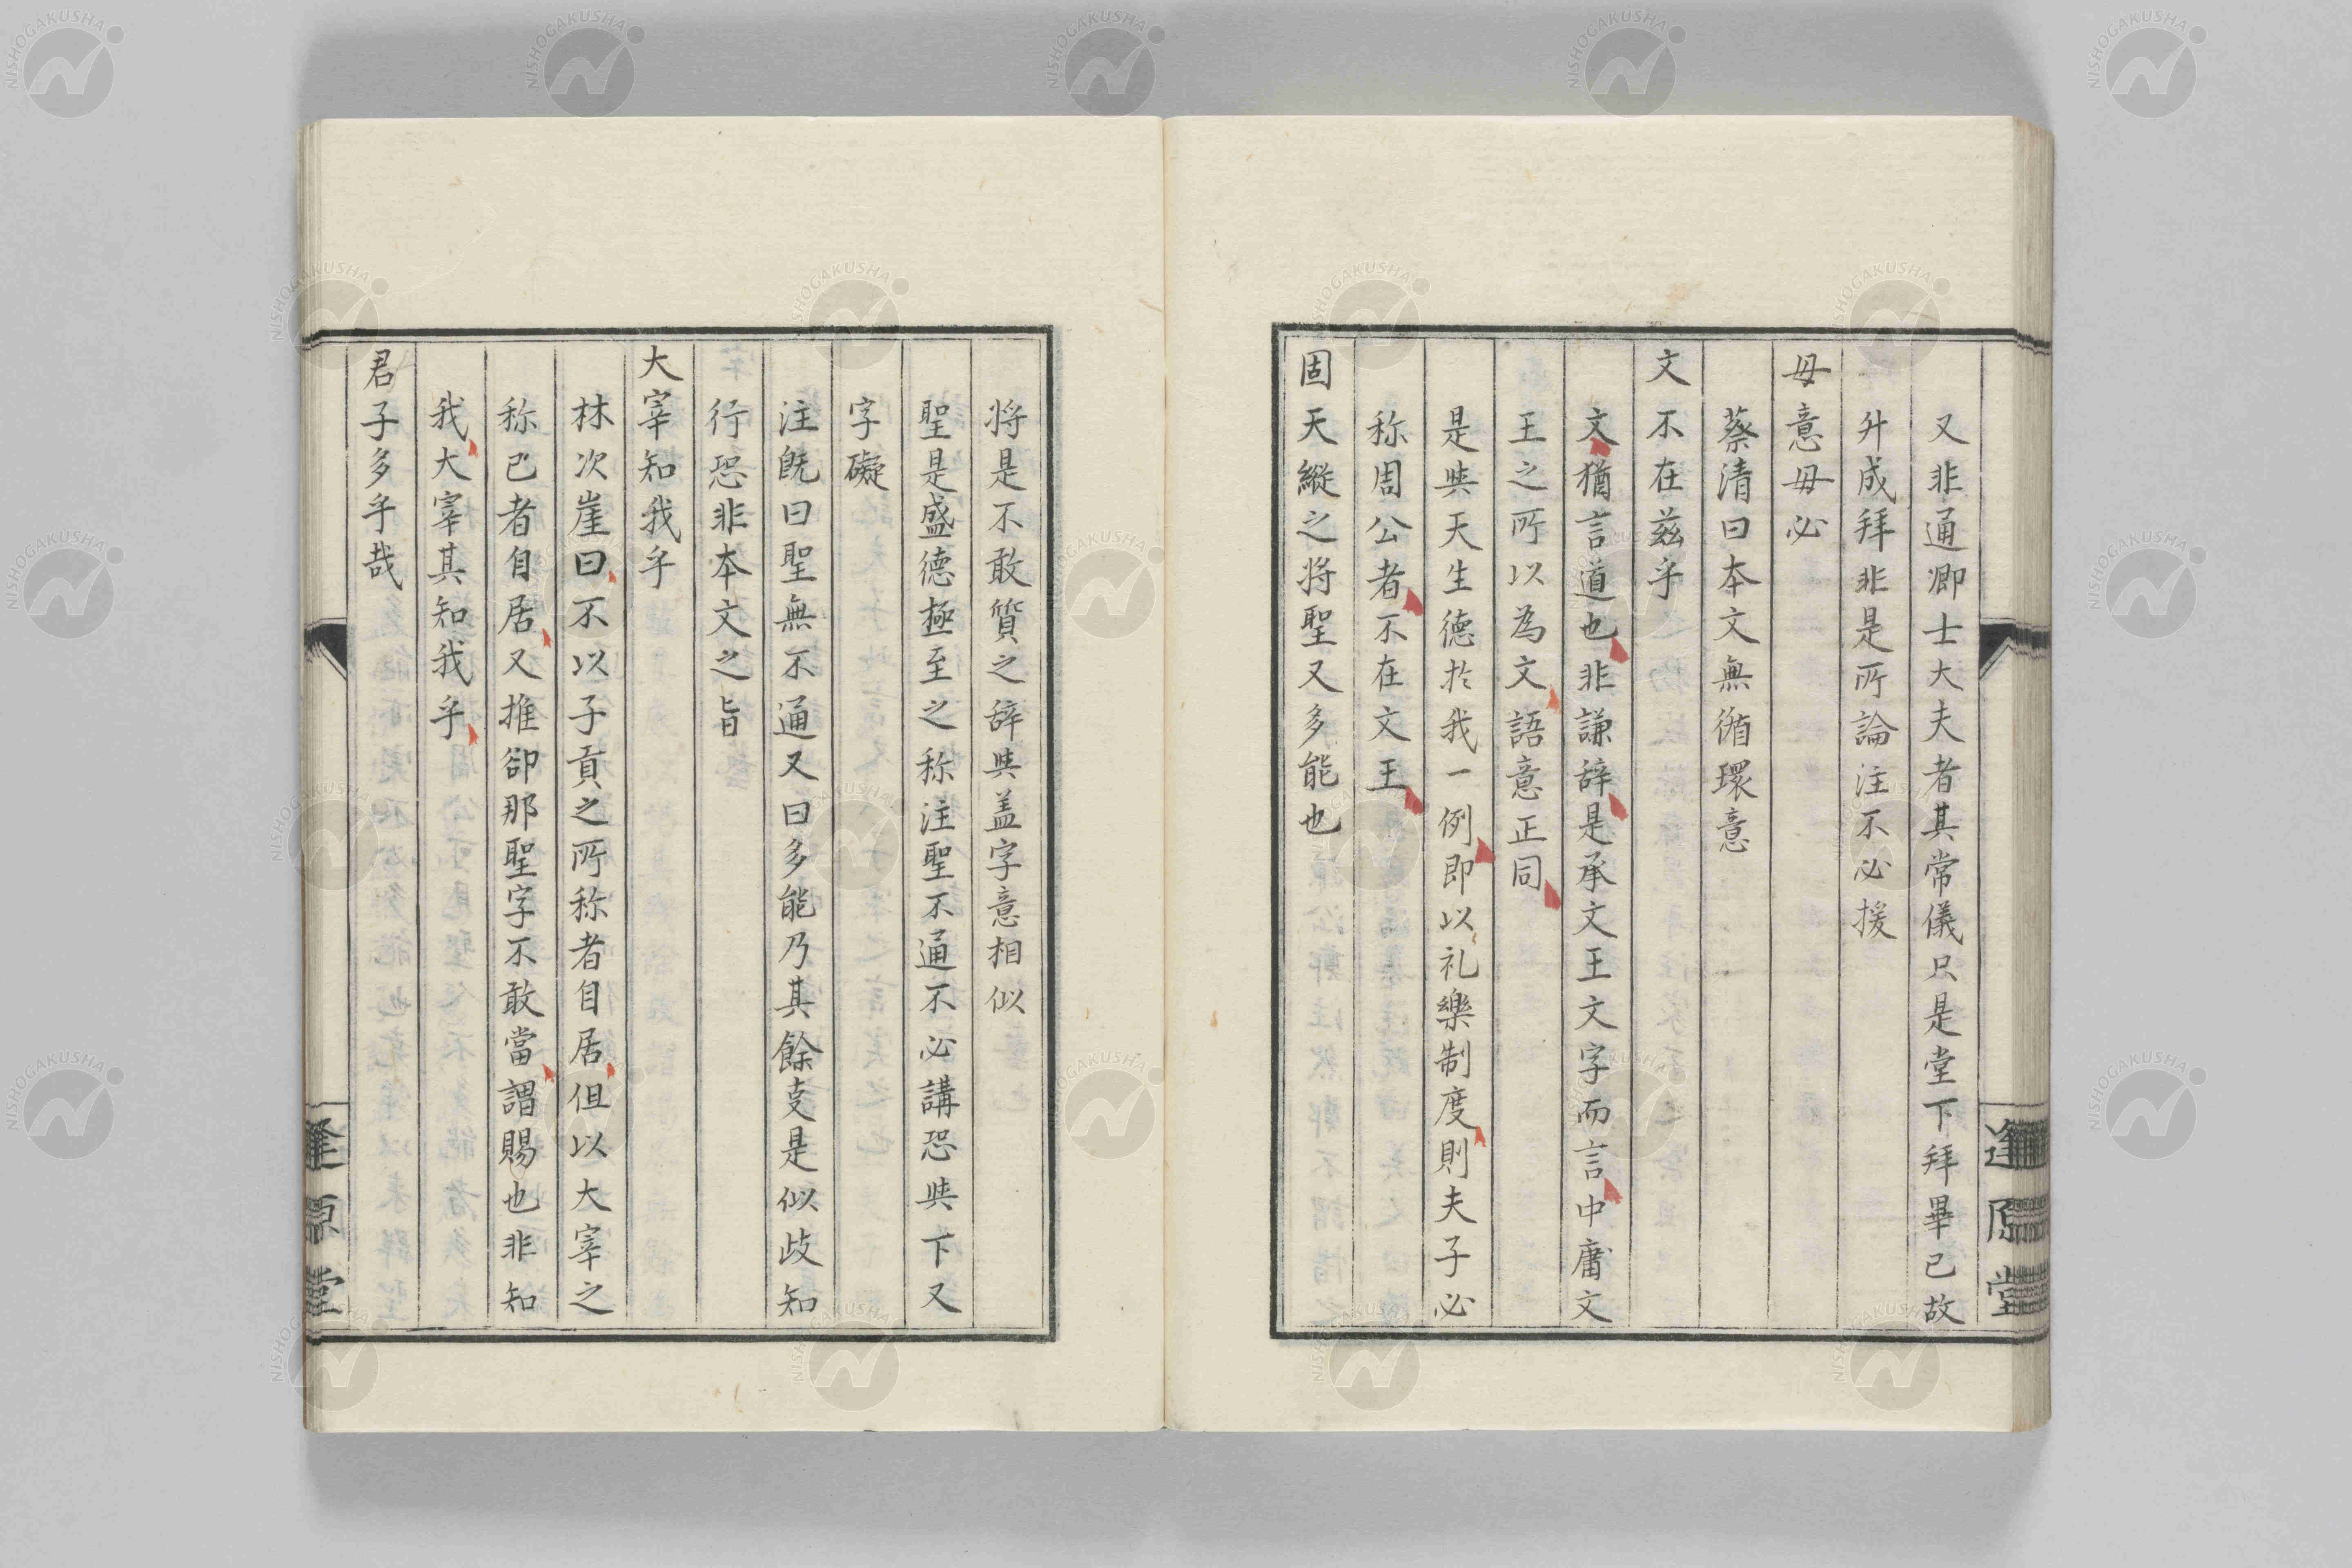 又非通卿士大夫者其常儀只是堂下拜畢已故
升成拜非是所論注不必援
毋意毋必
蔡清曰本文無循環意
文不在茲乎
文猶言道也非謙辞是承文王文字而言中庸文
王之所以為文語意正同
是與天生德於我一例即以礼樂制度則夫子必
称周公者不在文王
固天縱之将聖又多能也
逢原堂
将是不敢質之辞與盖字意相似
聖是盛德極至之称注聖不通不必講恐與下又
字礙
注既曰聖無不通又曰多能乃其餘支是似歧知
行恐非本文之旨
大宰知我乎
林次崖曰不以子貢之所称者自居但以大宰之
称己者自居又推卻那聖字不敢當謂賜也非知
我大宰其知我乎
君子多乎哉
逢原堂
NISHOGAKUSHA